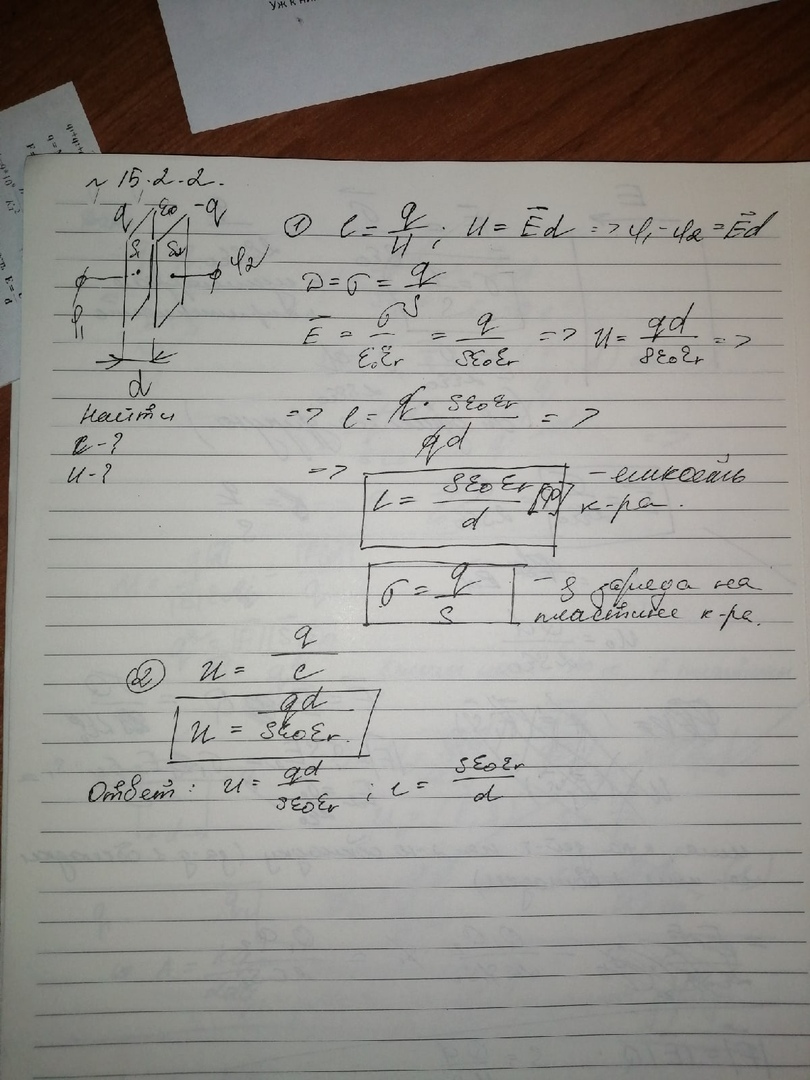 Уж к ни
~ 15.2.2.
q ε₀ -q
S₁ S₂ φ₂
φ₁
d
Найти
C-?
U-?
① C = q/U ; U = E⃗d => φ₁ - φ₂ = E⃗d
D = σ = q/S
E⃗ = σ/ε₀εr = q/Sε₀εr => U = qd/Sε₀εr =>
=> C = q · Sε₀εr/qd =>
=> C = Sε₀εr/d [Ф] - емкость
к-ра.
σ = q/S - заряда на
пластине к-ра.
② U = q/C
U = qd/Sε₀εr.
Ответ: U = qd/Sε₀εr ; C = Sε₀εr/d